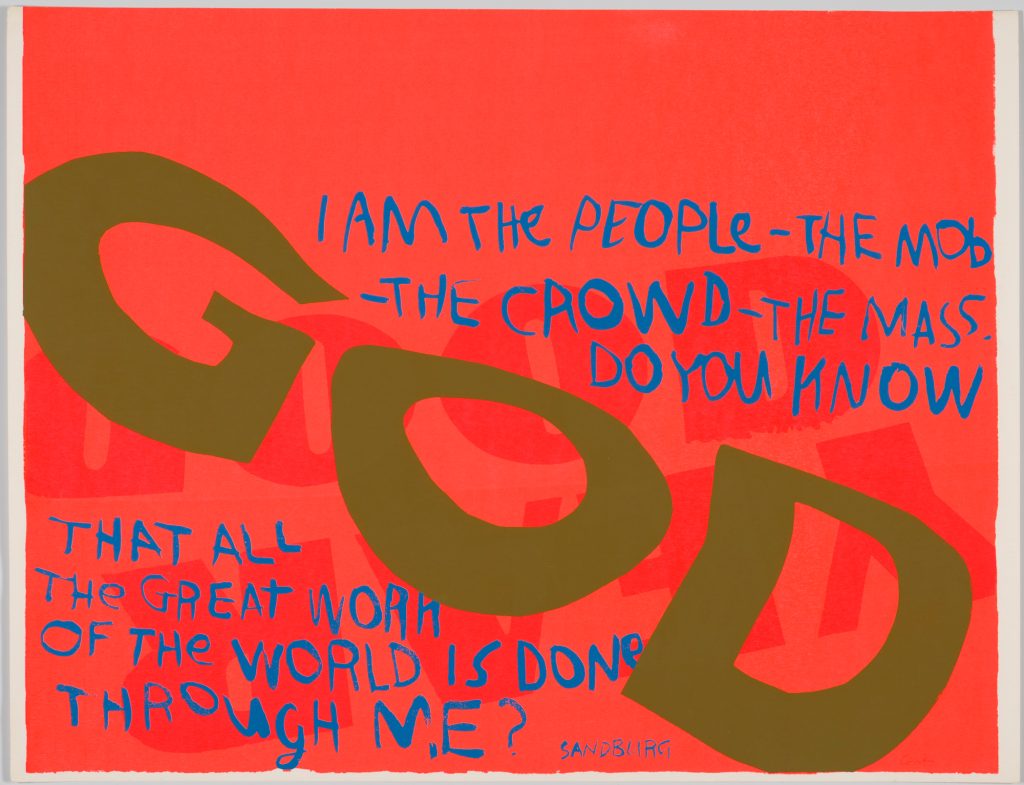 GOD
I AM THe PEOPLe – THE MOb
– THE CROWD – THE MASS.
DO YOU KNOW
THAT ALL
THe GREAt WORK
OF THe WORLD IS DONe
THROUGH M.E?
SANDBURG